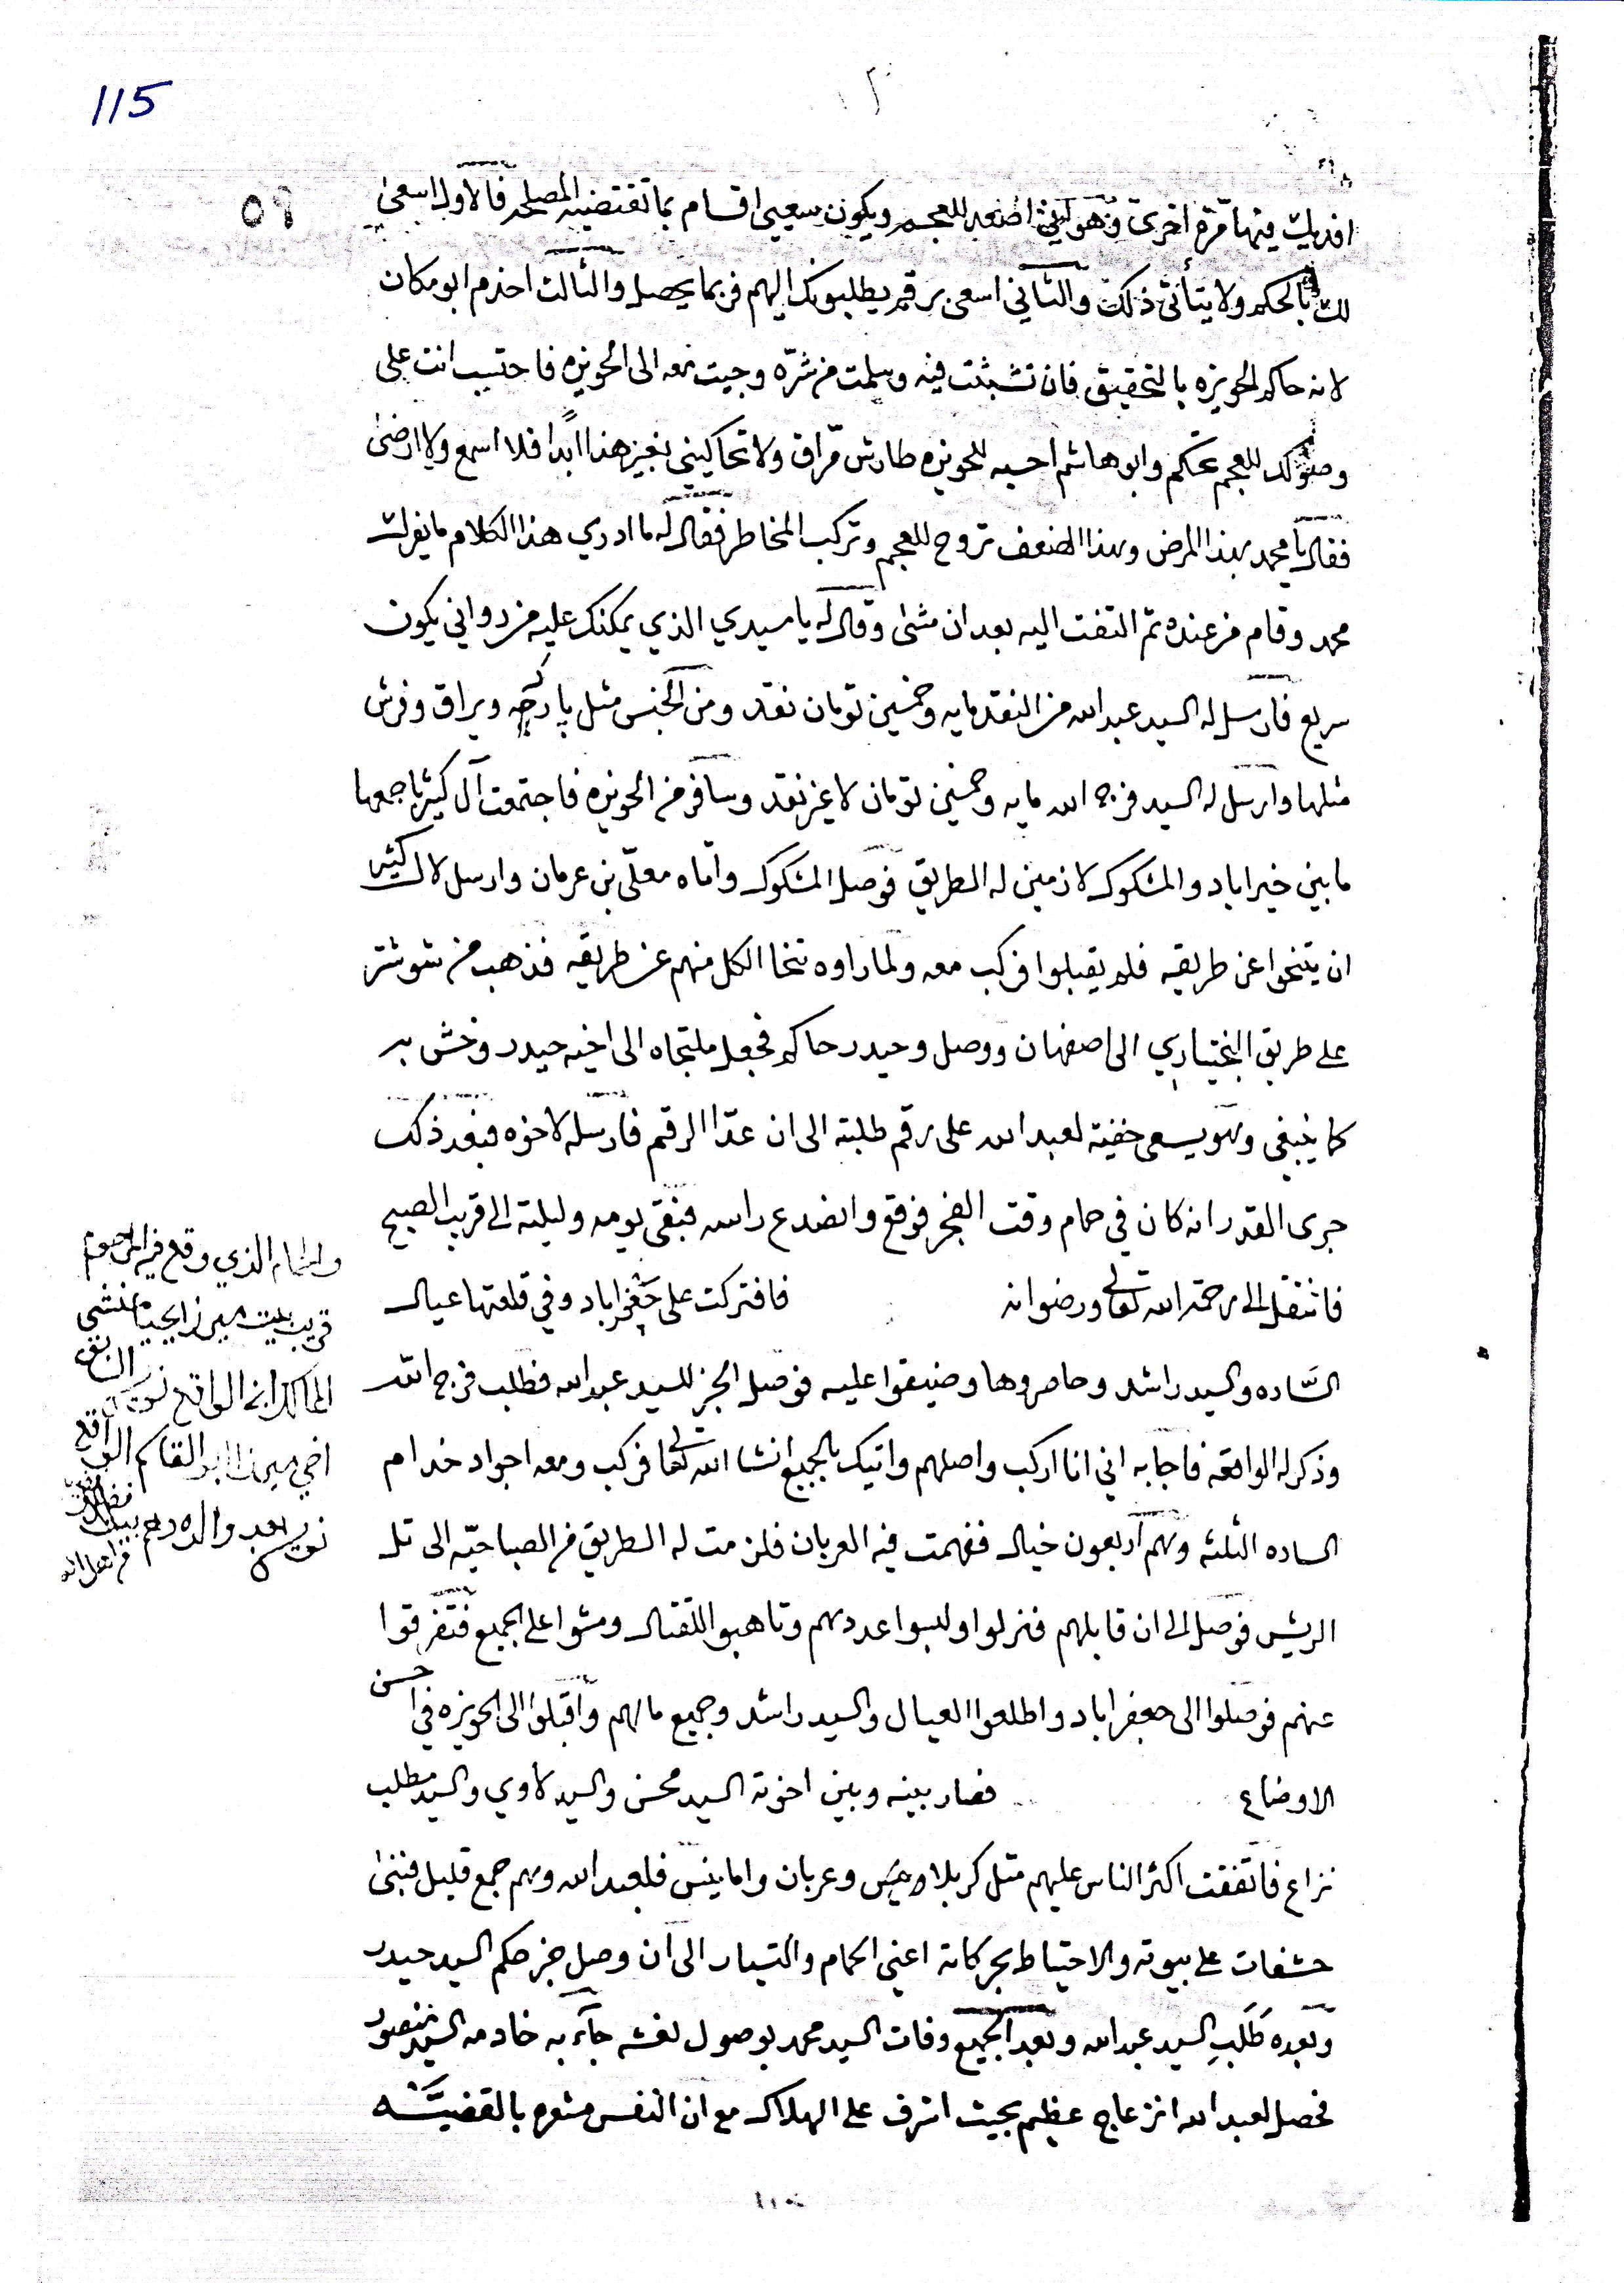 115
٥٩
افديك فيها مرّة اخرى وهو اني اصعد للعجم ويكون سعيي اقسام بما تقتضيه المصلحه فالاول اسعى
لك بالحكم ولا يتأتى ذلك والثاني اسعى برقم يطلبونك اليهم فربما يحصل والثالث احذرم ابو مكان
لانه حاكم الحويزه بالتحقيق فان تشبثت فيه وسلمت من شرّه وجيت معه الى الحويزه فاحتسب انت على
وصولك للعجم تحكم وابو هاشم احسبه للحويزه طارش مرّاق ولا تحاكيني بغير هذا ابدا فلا اسمع ولا ارضى
فقال يا محمد بهذا المرض وبهذا الضعف تروح للعجم وتركب المخاطر فقال له ما ادري هذا الكلام ما يفرك
محمد وقام من عنده ثم التفت اليه بعد ان مشى وقال له يا سيدي الذي يمكنك عليه من دواني يكون
سريع فارسل له السيد عبد الله من النقد مايه وخمسين تومان نقد ومن الجنس مثل پارچه ويراق وفرش
مثلها وارسل له السيد فرج الله مايه وخمسين تومان لا غير نقد وسافر من الحويزه فاجتمعت آل كثير باجمعها
ما بين خيراباد والمشكوك لازمين له الطريق فوصل المشكوك واتاه معلّى بن عرمان وارسل لال كثير
ان يتنحوا عن طريقه فلم يقبلوا فركب معه ولما راوه تنحا الكل منهم عن طريقه فذهب من شوشتر
على طريق البختياري الى اصفهان ووصل وحيدر حاكم فجعل ملتجاه الى اخيه حيدر وخش به
كما ينبغي وهو يسعى خفية لعبد الله على رقم طلبته الى ان عدّا الرقم فارسله لاخوه فبعد ذلك
جرى القدر انه كان في حمام وقت الفجر فوقع وانصدع راسه فبقى يومه وليلته الى قريب الصبح
فانتقل الى رحمة الله تعالى ورضوانه فافتركت على جعفراباد وفي قلعتها عيال
السّاده والسيد راشد وحاصروها وضيقوا عليه فوصل الخبر للسيد عبد الله فطلب فرج الله
وذكر له الواقعه فاجابه اني انا اركب واصلهم واتيك بالجميع انشا الله تعالى فركب ومعه اجواد خدام
الساده الثلثه وهم اربعون خيال ففهمت فيه العربان فلزمت له الطريق من الصباحيّه الى تل
الريش فوصل الى ان قابلهم فنزلوا ولبسوا عددهم وتاهبوا للقتال ومشوا على الجميع فتفرقوا
عنهم فوصلوا الى جعفراباد واطلعوا العيال والسيد راشد وجميع ما لهم واقبلوا الى الحويزه في احسن
الاوضاع فصار بينه وبين اخوته السيد محسن والسيد لاوي والسيد مطلب
نزاع فاتفقت اكثر الناس عليهم مثل كربلا ونيس وعربان واما نيس فلعبد الله وهم جمع قليل فبنى
حشفات على بيوته والاحتياط بحركاته اعني الحمام والتسيار الى ان وصل خبر حكم السيد حيدر
وبعده طلب السيد عبد الله وبعد الجميع وفات السيد محمد بوصول نعشه جآء به خادمه السيد منصور
فحصل لعبد الله انزعاج عظيم بحيث اشرف على الهلاك مع ان النفس مشعره بالقضيّه
والحمام الذي وقع فيه المرحوم
قريب بيت ميرزا يحيى منشي